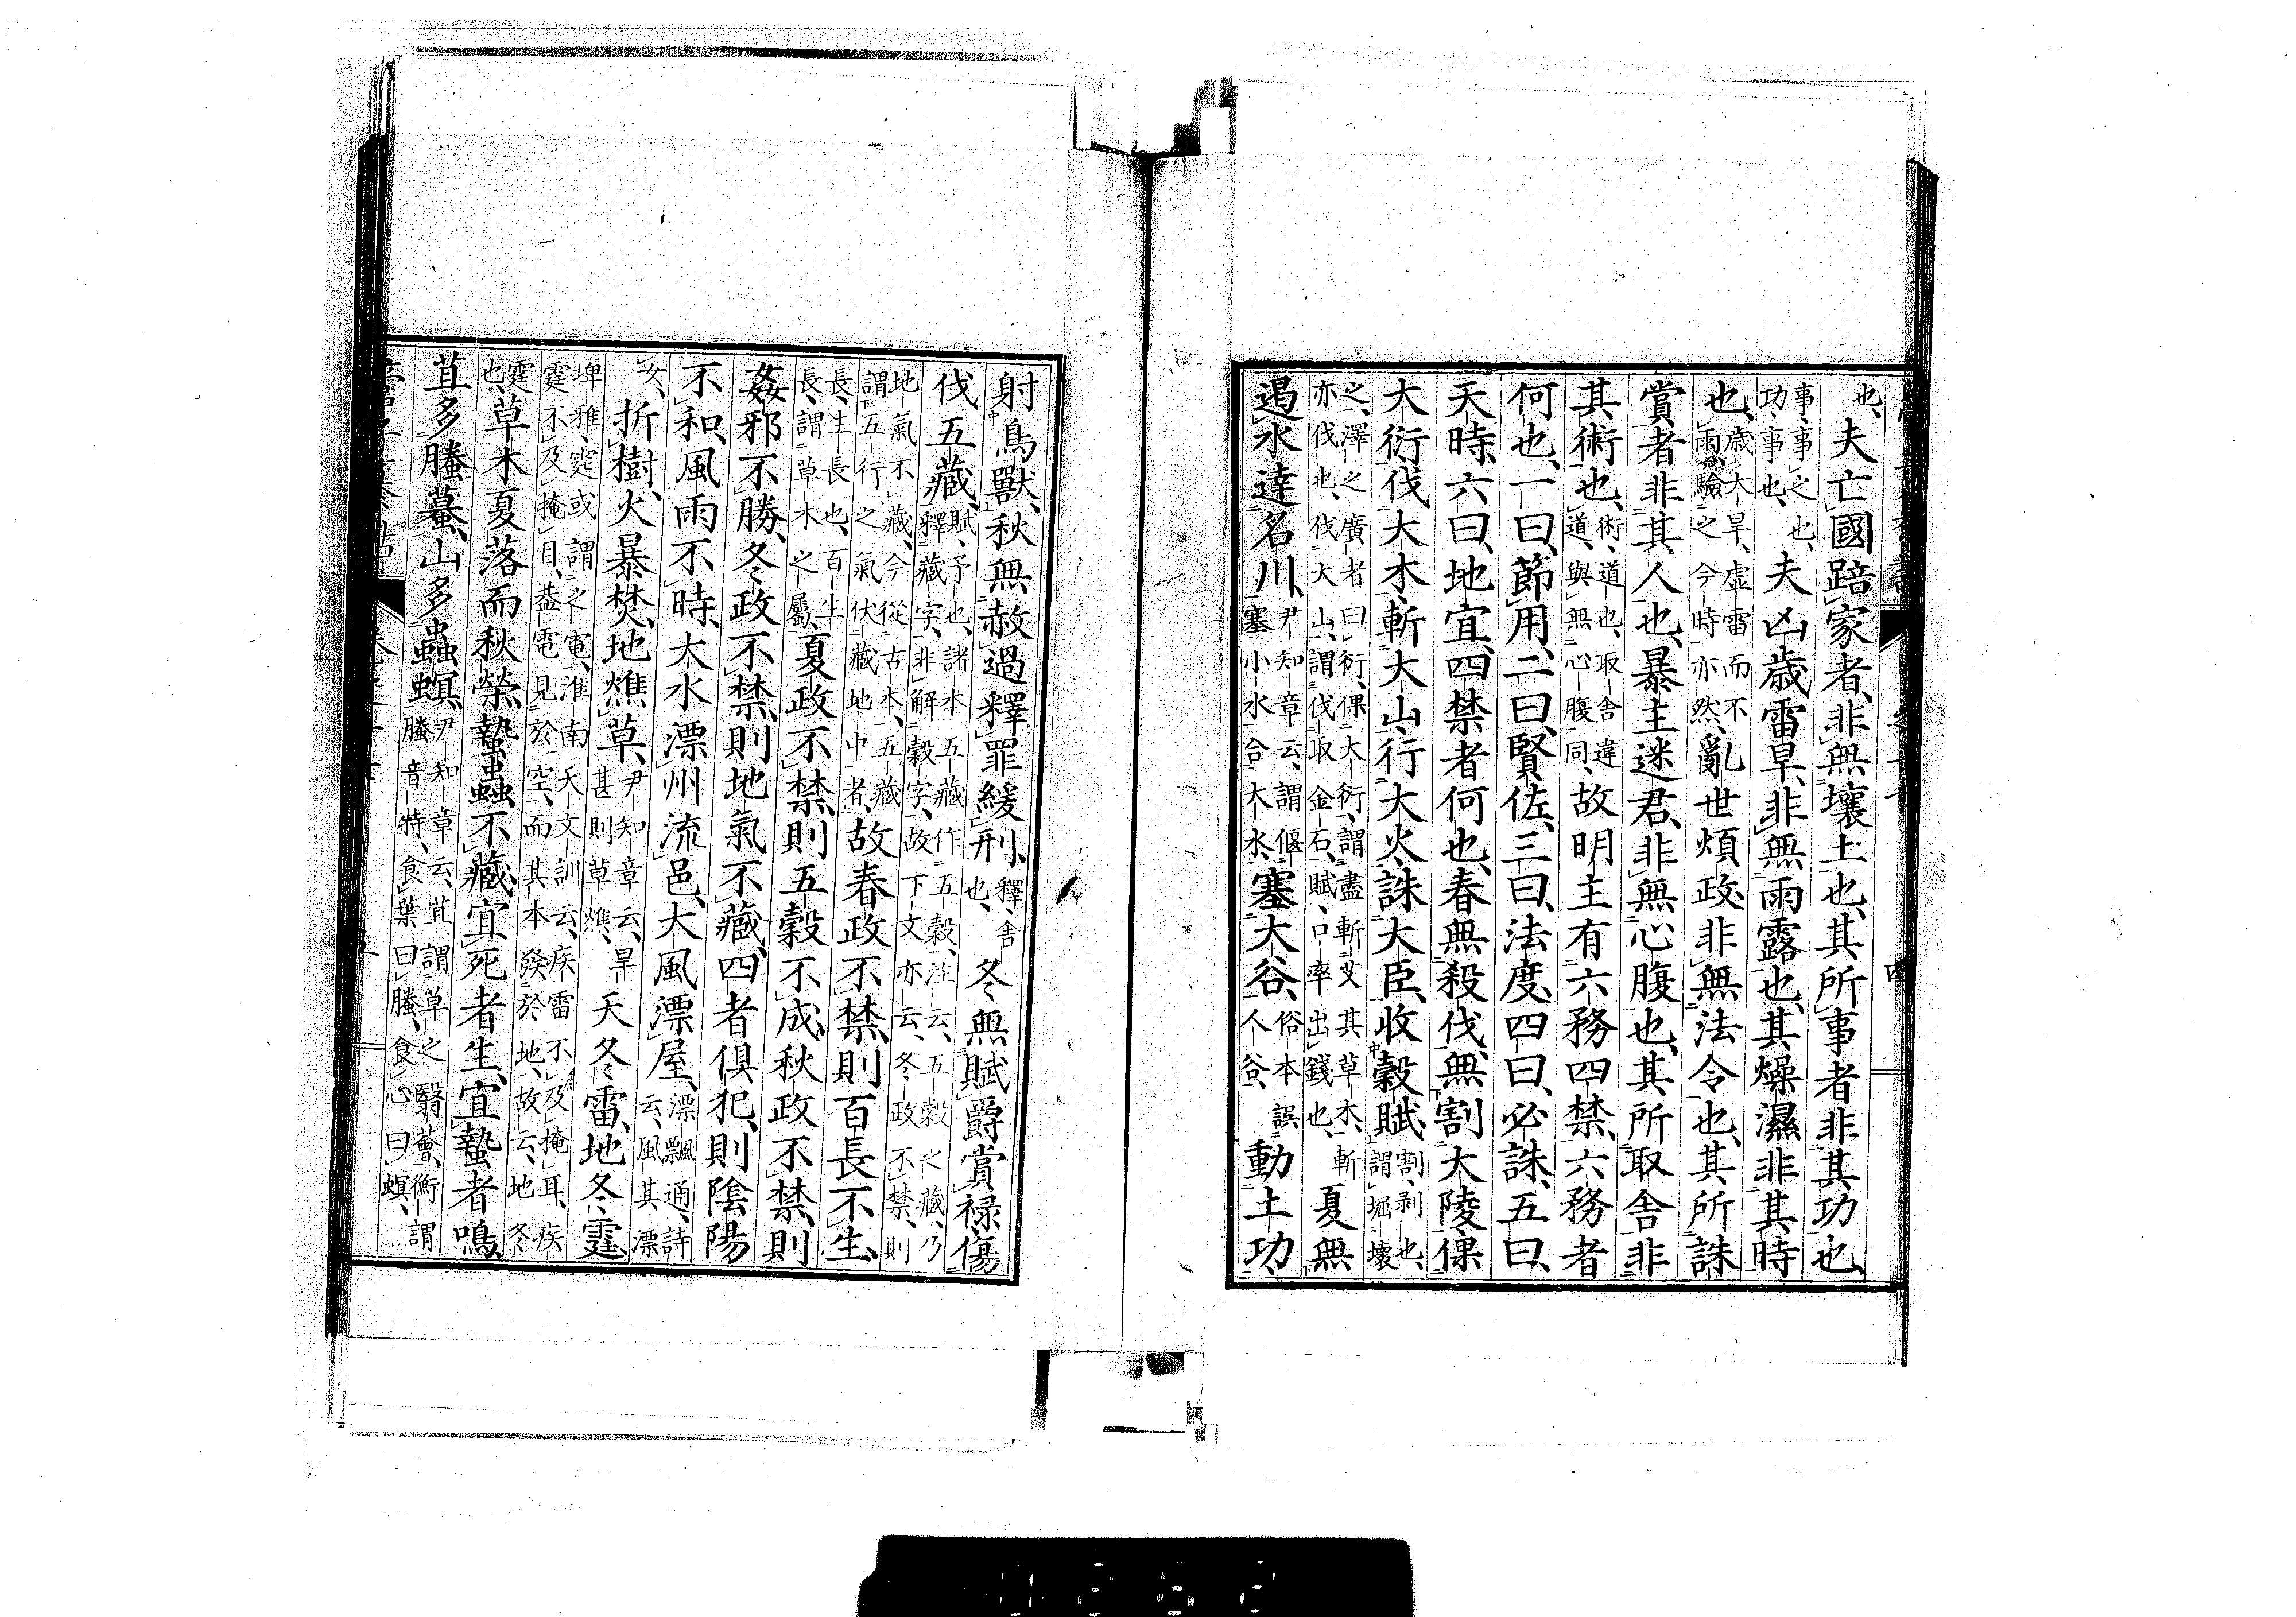 也、夫亡國踣家者、非無壤土也、其所事者非其功也、
事、事之也、功、事也、夫凶歲雷旱、非無雨露也、其燥濕非其時
也、歲大旱、虛雷而不雨、驗之今時亦然、亂世煩政、非無法令也、其所誅
賞者非其人也、暴主迷君、非無心腹也、其所取舍非
其術也、術、道也、取舍違道、與無心腹同、故明主有六務四禁、六務者
何也、一曰、節用、二曰、賢佐、三曰、法度、四曰、必誅、五曰、
天時、六曰、地宜、四禁者何也、春無殺伐、無割大陵、倮
大衍、伐大木、斬大山、行大火、誅大臣、收穀賦、割、剥也、謂堀壞
之、澤之廣者曰衍、倮大衍、謂盡斬艾其草木、斬亦伐也、伐大山、謂伐取金石、賦、口率出錢也、夏無
遏水達名川、尹知章云、謂偃塞小水合大水、塞大谷、俗本誤人谷、動土功、
射鳥獸、秋無赦過釋罪緩刑、釋、舍也、冬無賦爵賞祿、傷
伐五藏、賦、予也、諸本五藏作五穀、注云、五穀之藏、乃釋藏字、非解穀字、故下文亦云、冬政不禁、則
地氣不藏、今從古本、五藏謂五行之氣伏藏地中者、故春政不禁、則百長不生、
長、生長也、百生長、謂草木之屬、夏政不禁、則五穀不成、秋政不禁、則
姦邪不勝、冬政不禁、則地氣不藏、四者俱犯、則陰陽
不和、風雨不時、大水漂州流邑、大風漂屋、漂飄通、詩云、風其漂
女、折樹、火暴焚、地燋草、尹知章云、旱甚則草燋、天冬雷、地冬霆、
埤雅、霆或謂之電、淮南天文訓云、疾雷不及掩耳、疾霆不及掩目、蓋電見於空、而其本發於地、故云、地冬
霆也、草木夏落而秋榮、蟄蟲不藏、宜死者生、宜蟄者鳴、
苴多螣蟇、山多蟲螟、尹知章云、苴謂草之翳薈、衡謂螣音特、食葉曰螣、食心曰螟、